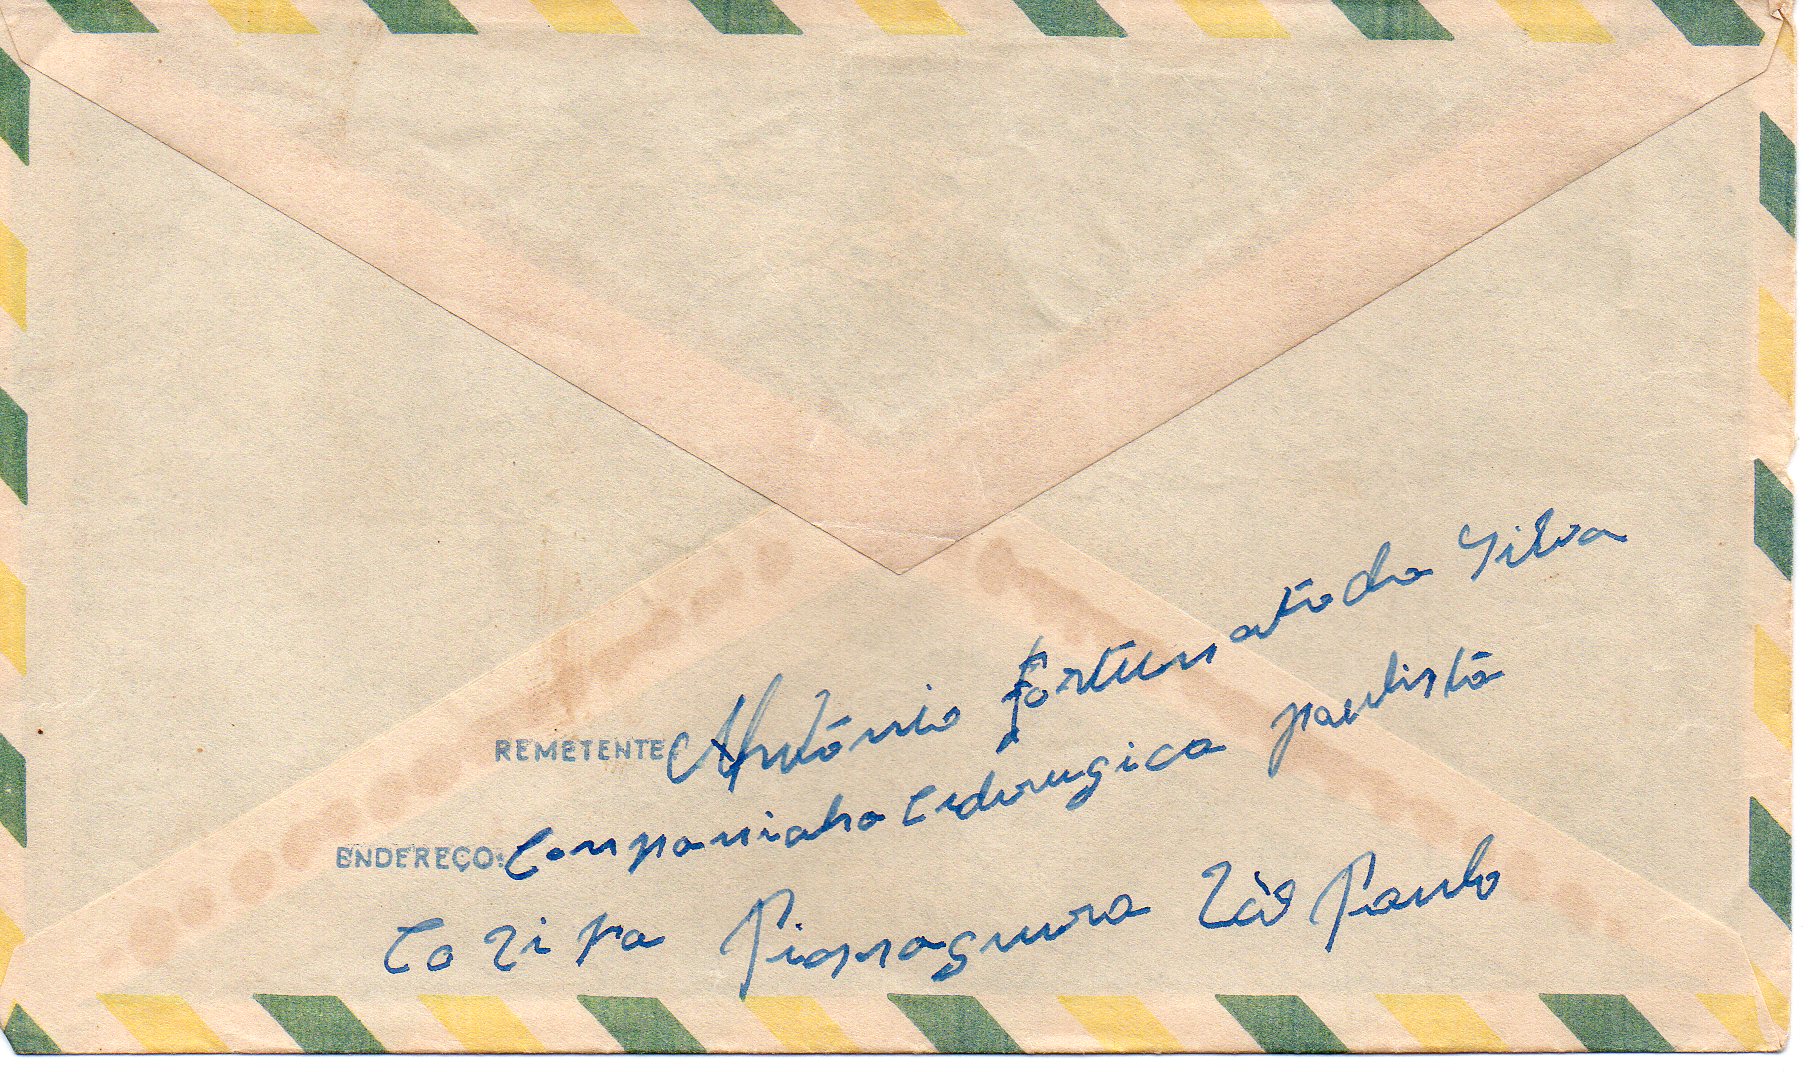 REMETENTE António fortunato da Silva
ENDEREÇO: Companiaha Ciderugica paulista
Co Zi pa Piassaguera São Paulo